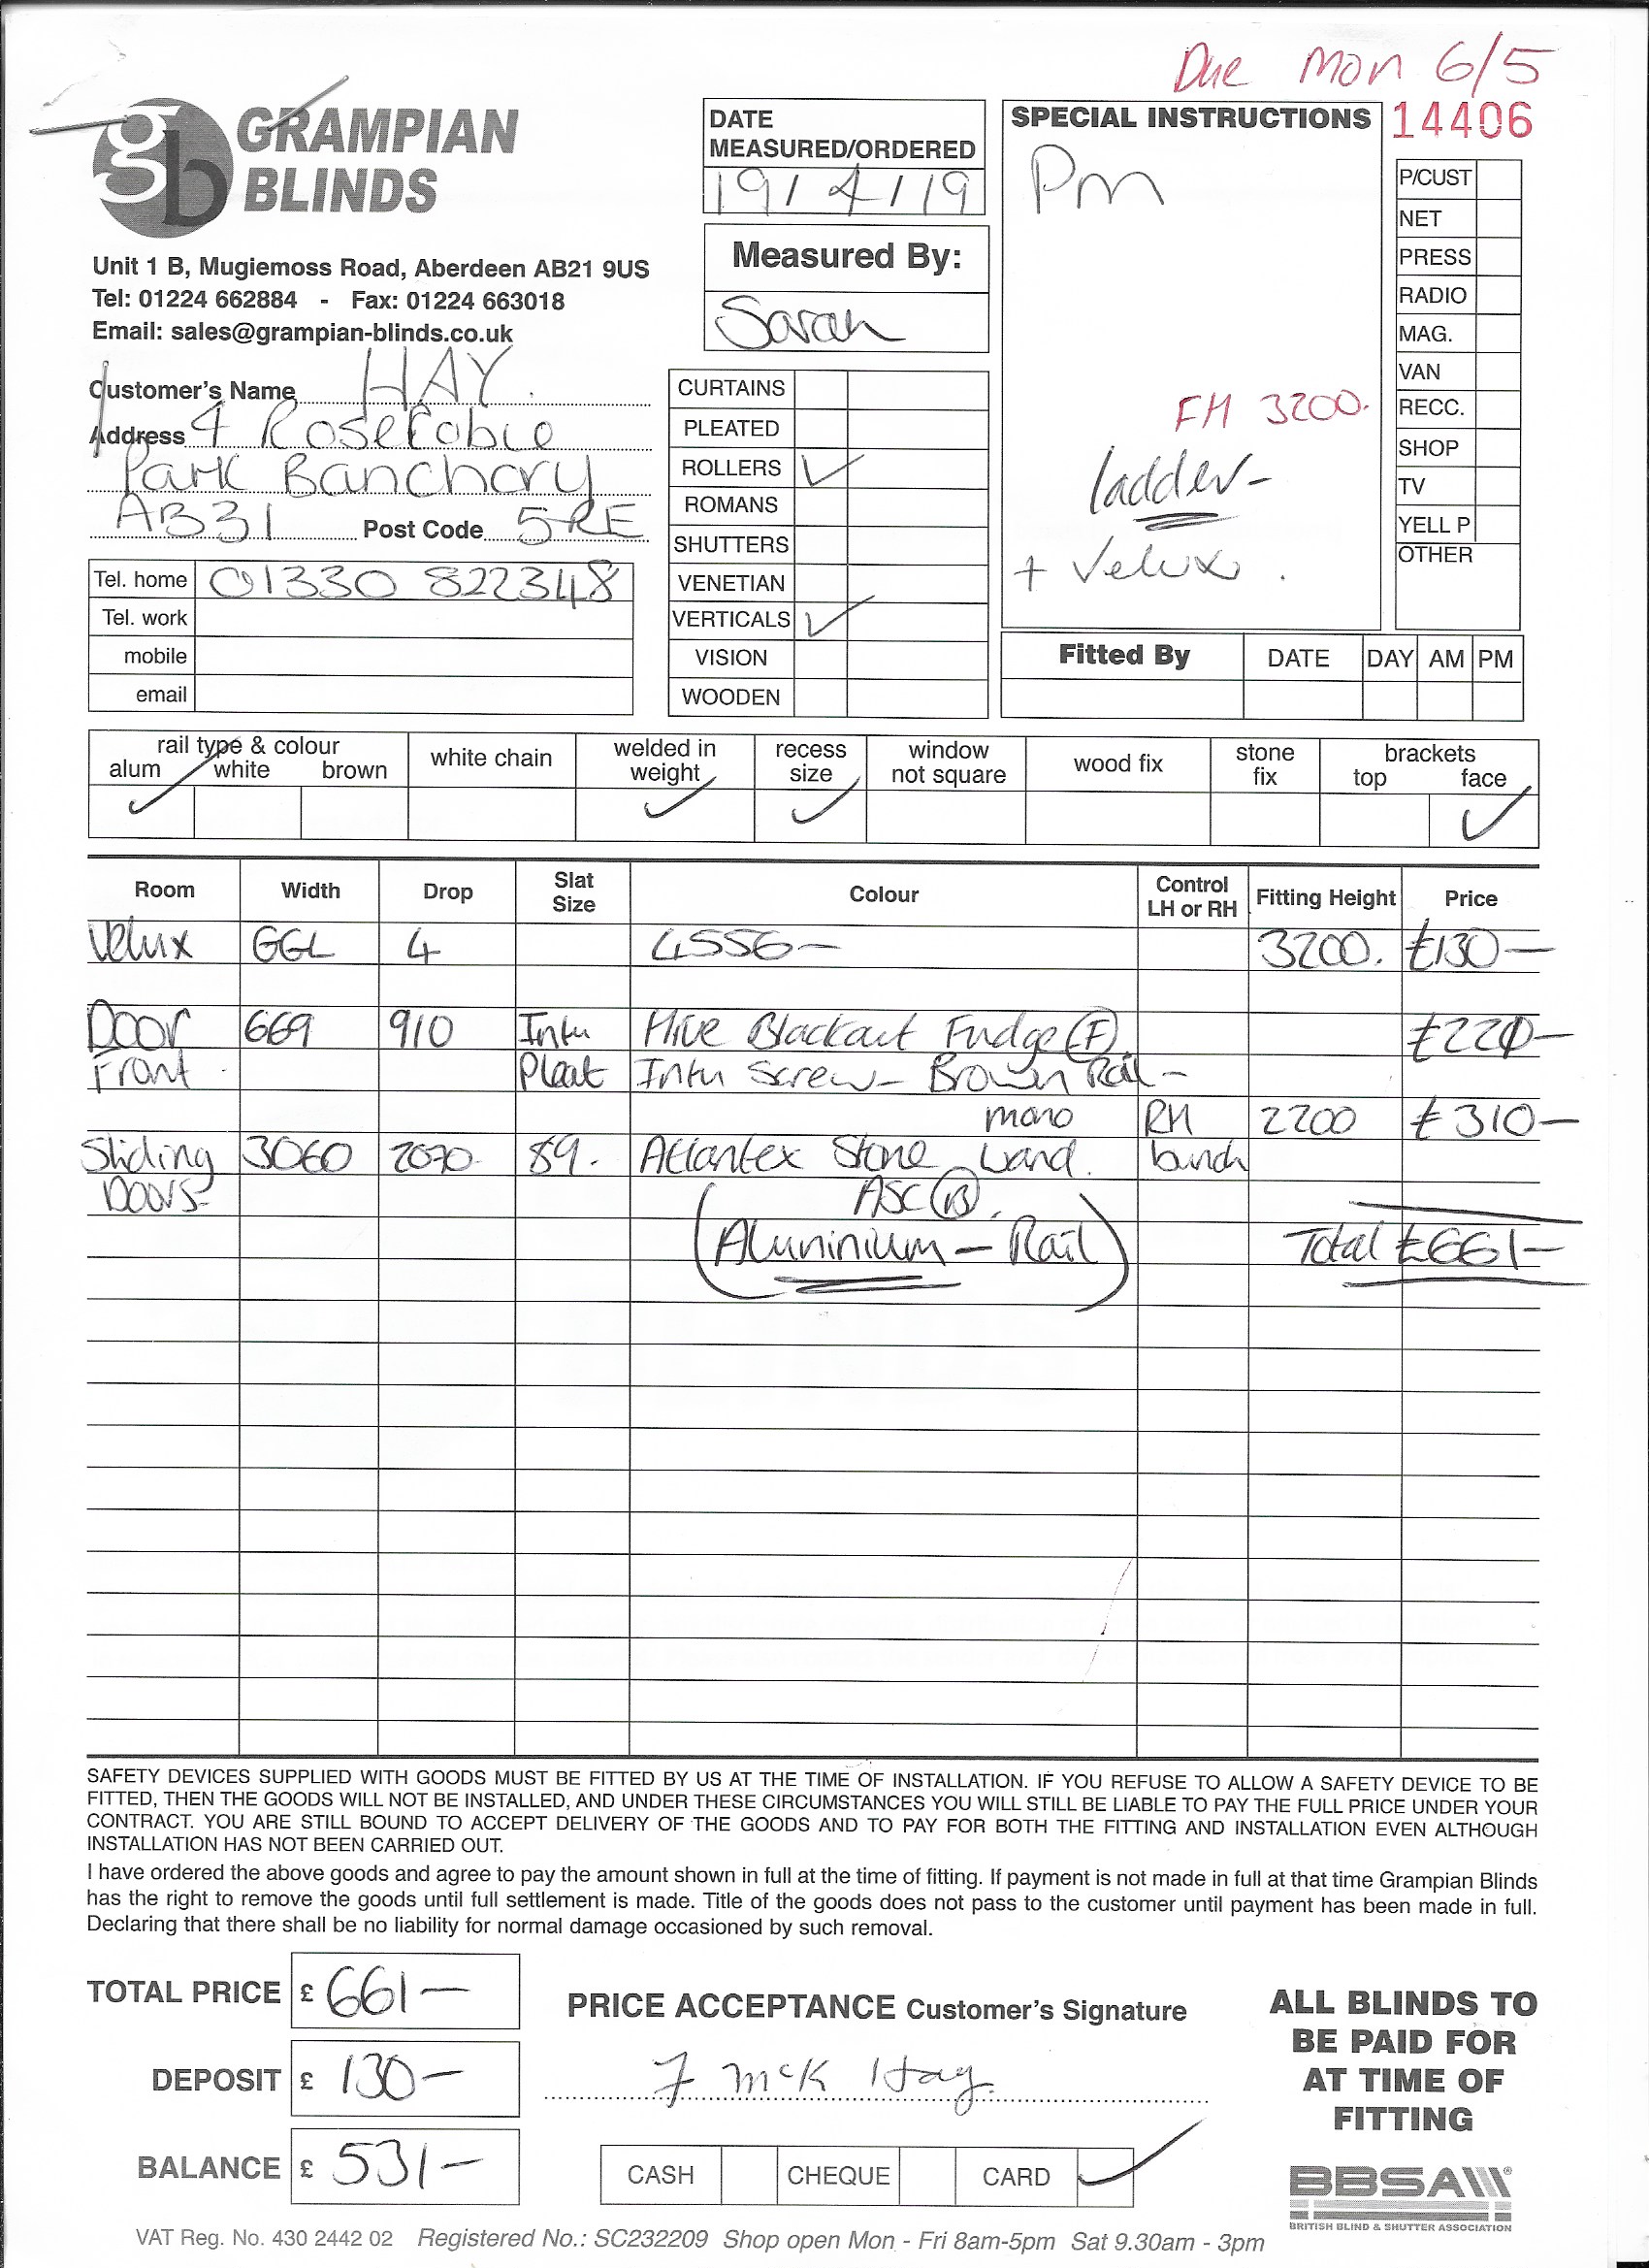 Due Mon 6/5
GRAMPIAN
BLINDS
gb
Unit 1 B, Mugiemoss Road, Aberdeen AB21 9US
Tel: 01224 662884 - Fax: 01224 663018
Email: sales@grampian-blinds.co.uk
Customer's Name HAY.
Address 4 Rosefobie
Park Banchory
AB31 Post Code 5RE
Tel. home 01330 822348
Tel. work
mobile
email
DATE
MEASURED/ORDERED
19/4/19
Measured By:
Sarah
CURTAINS
PLEATED
ROLLERS ✓
ROMANS
SHUTTERS
VENETIAN
VERTICALS ✓
VISION
WOODEN
SPECIAL INSTRUCTIONS
Pm
FH 3200.
ladder-
+ Velux.
14406
P/CUST
NET
PRESS
RADIO
MAG.
VAN
RECC.
SHOP
TV
YELL P
OTHER
Fitted By DATE DAY AM PM
rail type & colour
alum white brown
white chain
welded in
weight
recess
size
window
not square
wood fix
stone
fix
brackets
top face
✓ ✓ ✓ ✓
Room Width Drop Slat Size Colour Control LH or RH Fitting Height Price
Velux GGL 4 4556- 3200. £130-
Door 669 910 Intu Hive Blackout Fudge (F) £221-
Front Pleat Intu Screw- Brown Rail-
mono RH 2200 £310-
Sliding 3060 2070 89. Atlantex Stone wand. bunch
Doors- ASC (B).
(Aluminium - Rail) Total £661-
SAFETY DEVICES SUPPLIED WITH GOODS MUST BE FITTED BY US AT THE TIME OF INSTALLATION. IF YOU REFUSE TO ALLOW A SAFETY DEVICE TO BE
FITTED, THEN THE GOODS WILL NOT BE INSTALLED, AND UNDER THESE CIRCUMSTANCES YOU WILL STILL BE LIABLE TO PAY THE FULL PRICE UNDER YOUR
CONTRACT. YOU ARE STILL BOUND TO ACCEPT DELIVERY OF THE GOODS AND TO PAY FOR BOTH THE FITTING AND INSTALLATION EVEN ALTHOUGH
INSTALLATION HAS NOT BEEN CARRIED OUT.
I have ordered the above goods and agree to pay the amount shown in full at the time of fitting. If payment is not made in full at that time Grampian Blinds
has the right to remove the goods until full settlement is made. Title of the goods does not pass to the customer until payment has been made in full.
Declaring that there shall be no liability for normal damage occasioned by such removal.
TOTAL PRICE £ 661-
DEPOSIT £ 130-
BALANCE £ 531-
PRICE ACCEPTANCE Customer's Signature
7 McK Hay.
CASH CHEQUE CARD ✓
ALL BLINDS TO
BE PAID FOR
AT TIME OF
FITTING
BBSA
BRITISH BLIND & SHUTTER ASSOCIATION
VAT Reg. No. 430 2442 02 Registered No.: SC232209 Shop open Mon - Fri 8am-5pm Sat 9.30am - 3pm